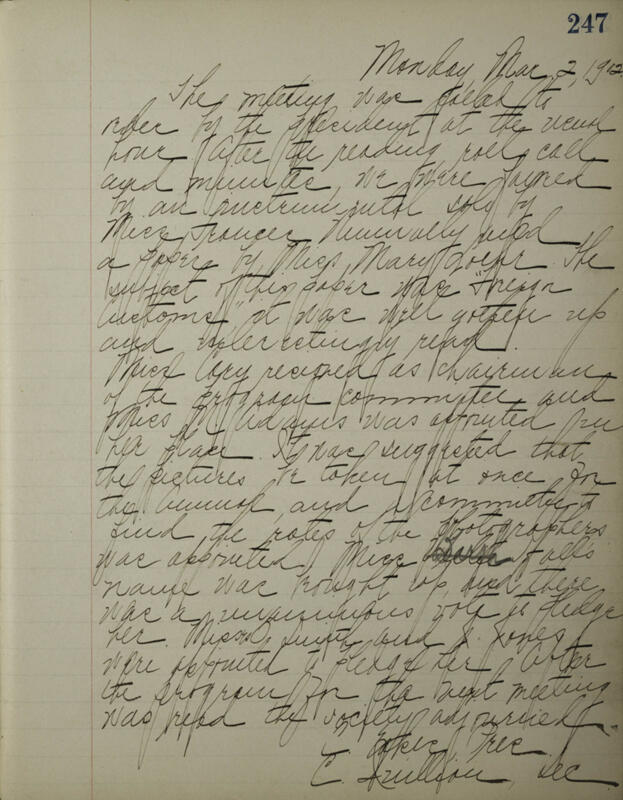 247
Monday, Mar 2, 1912
The meeting was called to
order by the president at the usual
hour. After the reading, roll call
and minutes, we were favored
by an instrumental solo by
Miss Frances Nunnally read
a paper by Miss Mary The
subject of this paper was "Foreign
Customs," it was well gotten up
and interestingly read.
Miss Cory resigned as chairman
of the program committee and
Miss Adams was appointed in
her place. It was suggested that
the pictures be taken at once for
the annual, and a committee to
find the rates of the Photographers
was appointed. Miss Hall's
name was brought up, and there
was a unanimous vote to pledge
her. Misses Smith and J. Jones
were appointed to pledge her. After
the program for the next meeting
was read the society adjourned.
Pres.
C. Quillian, Sec